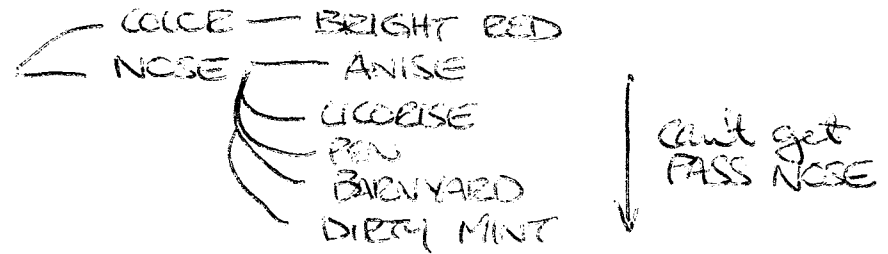 COLOR — BRIGHT RED
NOSE — ANISE
LICORISE
PEN
BARNYARD
DIRTY MINT
Can't get
PASS NOSE